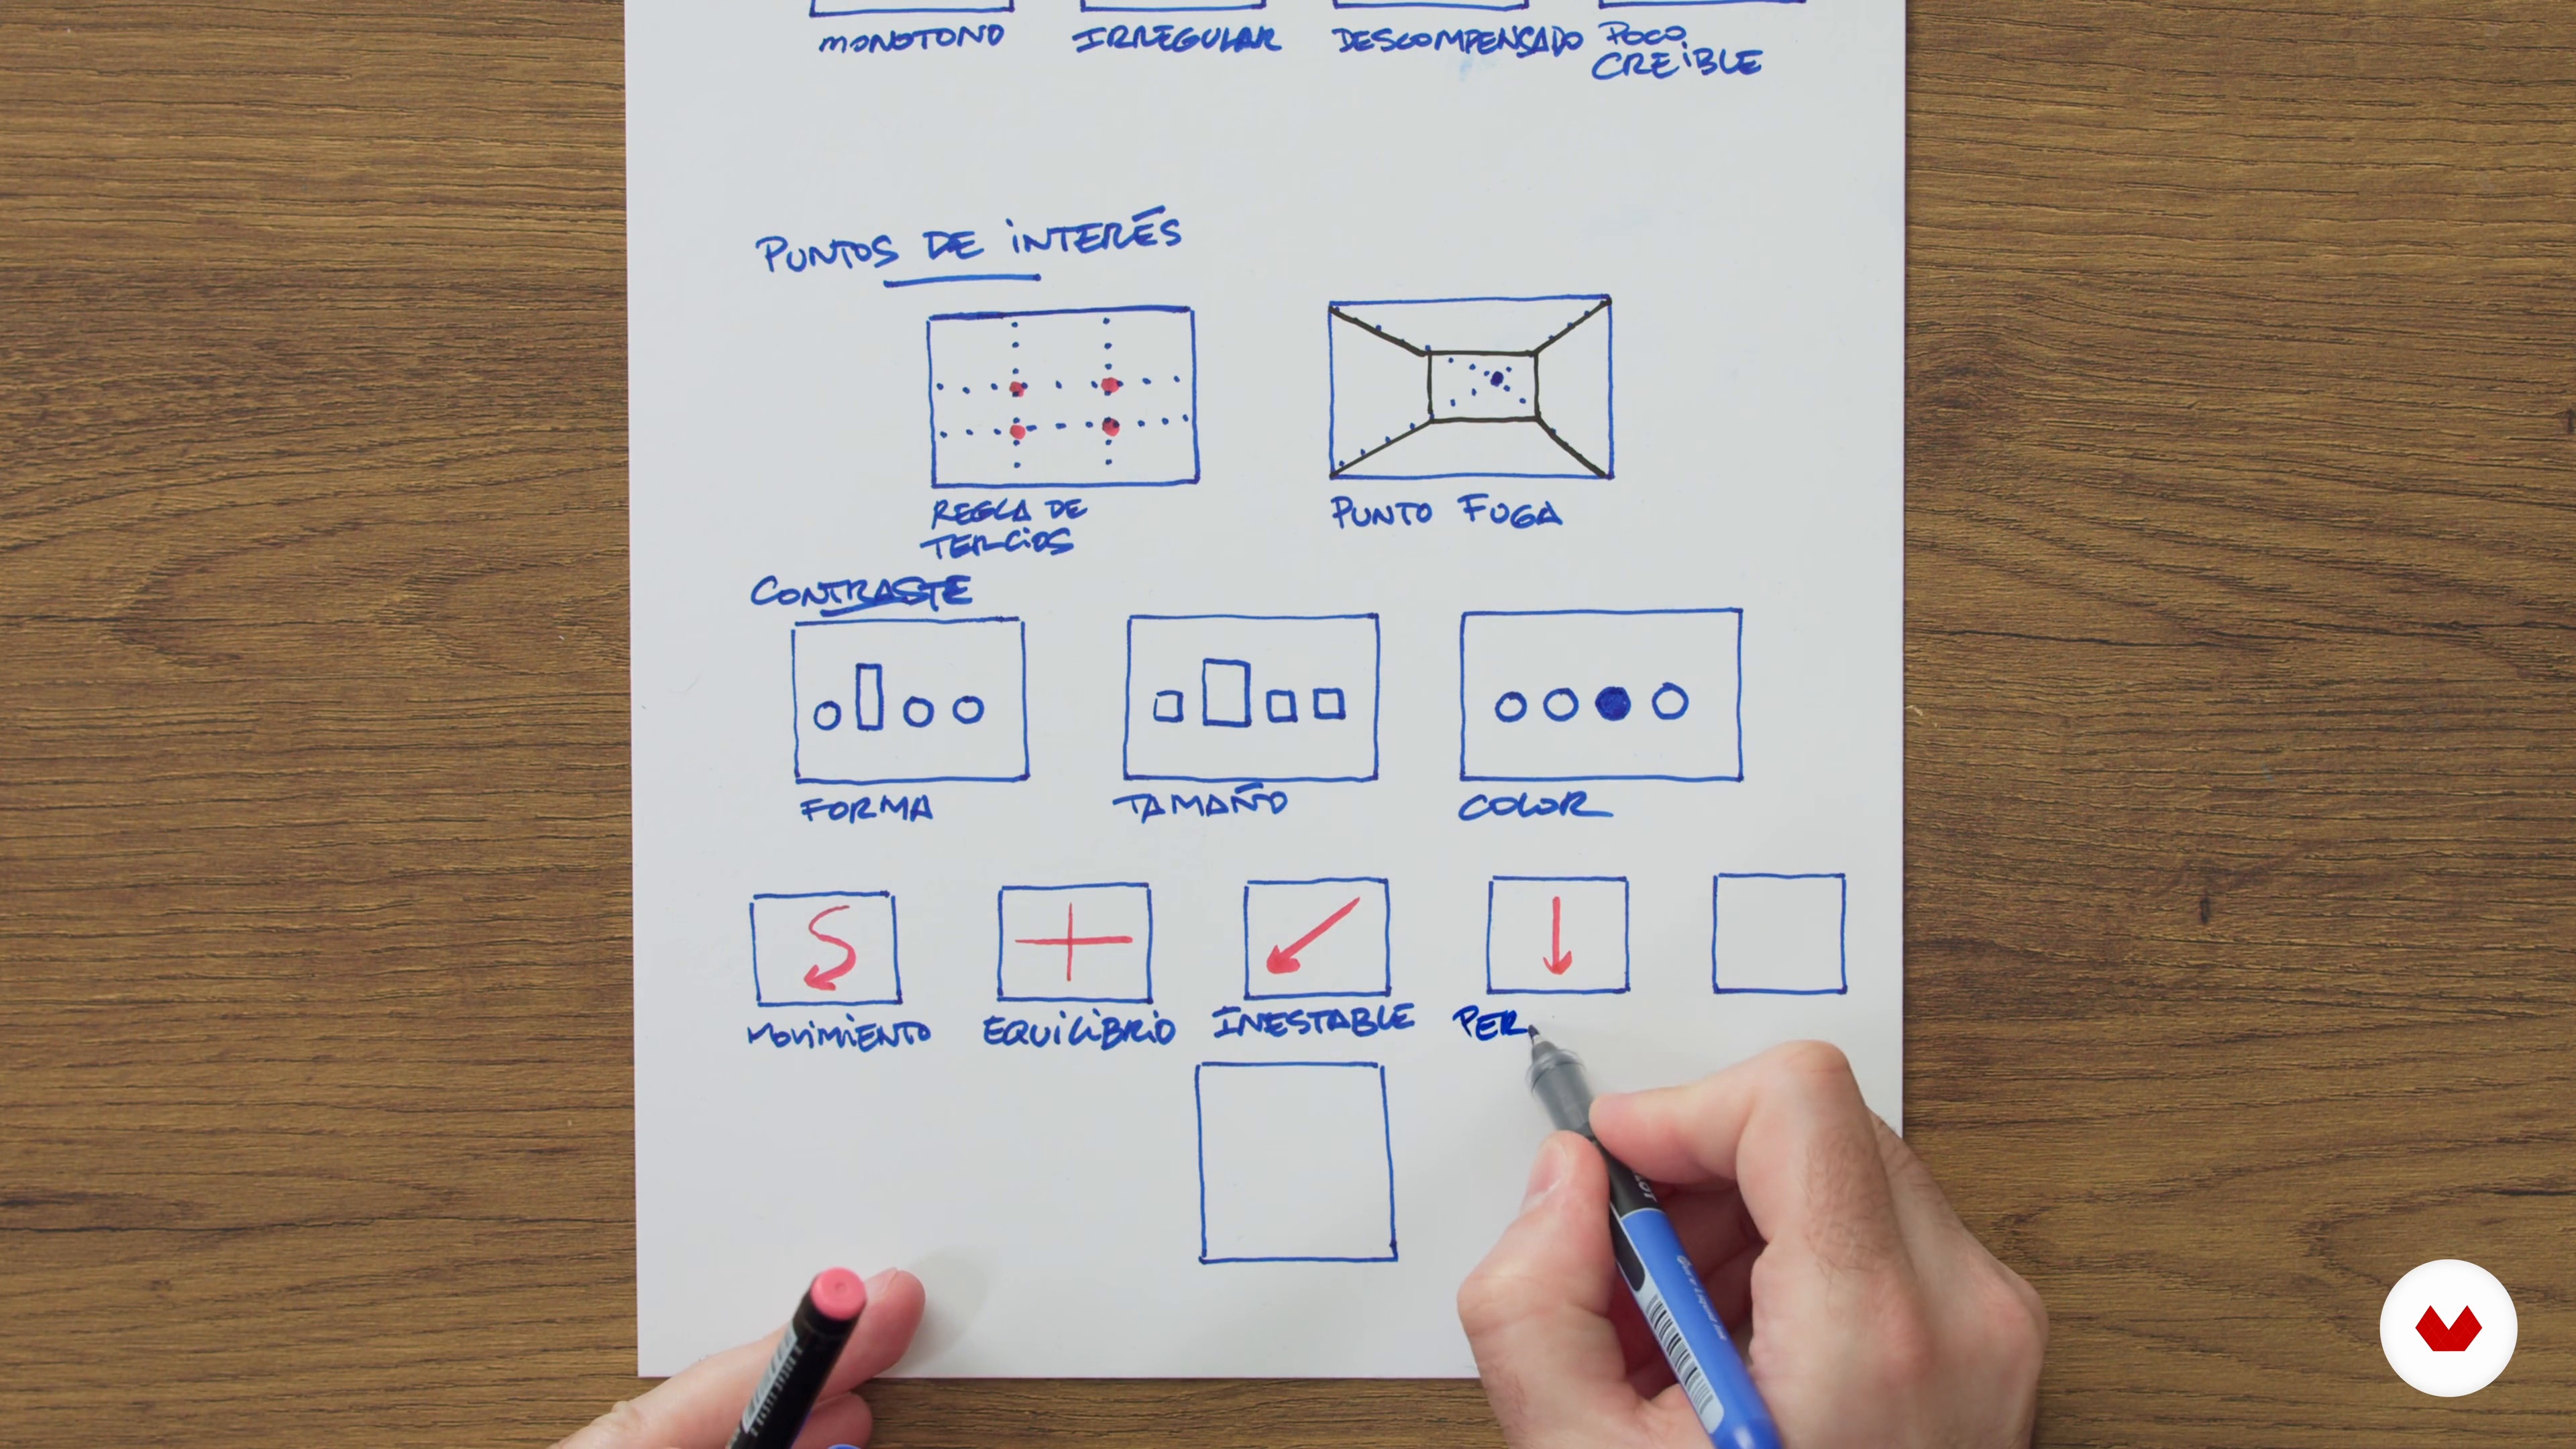 MONOTONO
IRREGULAR
DESCOMPENSADO
POCO
CREIBLE
PUNTOS DE INTERÉS
REGLA DE
TERCIOS
PUNTO FUGA
CONTRASTE
FORMA
TAMAÑO
COLOR
MOVIMIENTO
EQUILIBRIO
INESTABLE
PER